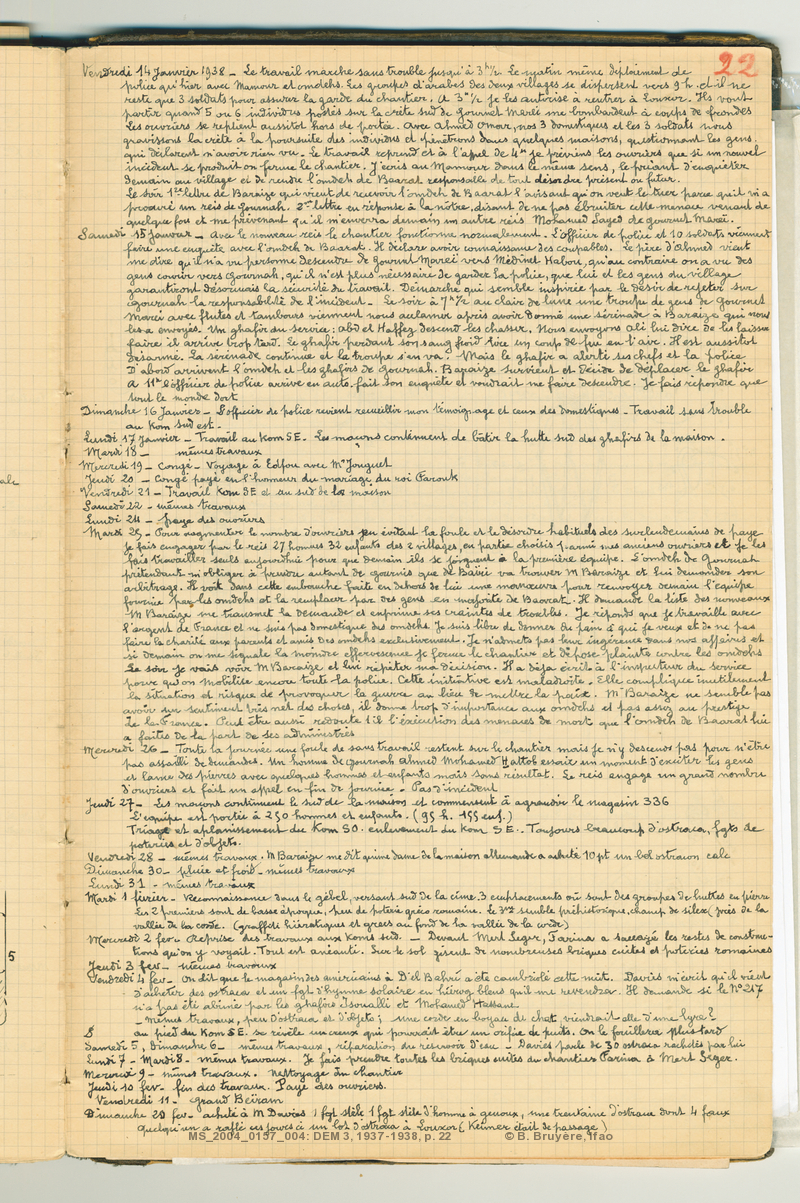 22
Vendredi 14 Janvier 1938 _ Le travail marche sans trouble jusqu'à 3 h 1/2. Le matin même déploiement de
police qu'hier avec Mamour et omdehs. Les groupes d'arabes des deux villages se dispersent vers 9 h. et il ne
reste que 3 soldats pour assurer la garde du chantier. A 3 h 1/2 je les autorise à rentrer à Louxor. Ils vont
partir quand 5 ou 6 individus postés sur la crête sud de Gournet Mareï me bombardent à coups de frondes
Les ouvriers se replient aussitôt hors de portée. Avec Ahmed Omar, nos 3 domestiques et les 3 soldats nous
gravissons la crête à la poursuite des individus et pénétrons dans quelques maisons, questionnant les gens
qui déclarent n'avoir rien vu _ Le travail reprend et à l'appel de 4 h je préviens les ouvriers que si un nouvel
incident se produit on ferme le chantier. J'écris au Mamour dans le même sens, le priant d'enquêter
demain au village et de rendre l'omdeh de Baarat responsable de tout désordre présent ou futur.
Le soir 1ère lettre de Baraize qui vient de recevoir l'omdeh de Baarat l'avisant qu'on veut le tuer parce qu'il m'a
procuré un reïs de Gournah. 2e lettre en réponse à la nôtre, disant de ne pas ébruiter cette menace venant de
quelque fou et me prévenant qu'il m'enverra demain un autre réis Mohamed Sayed de Gournet Mareï.
Samedi 15 janvier _ Avec le nouveau reis le chantier fonctionne normalement. L'officier de police et 10 soldats viennent
faire une enquête avec l'omdeh de Baarat. Il déclare avoir connaissance des coupables. Le père d'Ahmed vient
me dire qu'il n'a vu personne descendre de Gournet Mareï vers Médinet Habou, qu'au contraire on a vu des
gens courir vers Gournah, qu'il n'est plus nécessaire de garder la police, que lui et les gens du village
garantiront désormais la sécurité du travail. Démarche qui semble inspirée par le désir de rejeter sur
Gournah la responsabilité de l'incident _ Le soir à 7 h 1/2 au clair de lune une troupe de gens de Gournet
Mareï avec flutes et tambours viennent nous acclamer après avoir donné une sérénade à Baraize qui nous
les a envoyés. Un ghafir du service : abd el Haffez descend les chasser. Nous envoyons Ali lui dire de les laisser
faire ; il arrive trop tard. Le ghafir perdant son sang froid tire un coup de feu en l'air. Il est aussitôt
désarmé. La sérénade continue et la troupe s'en va. Mais le ghafir a alerté ses chefs et la police
D'abord arrivent l'omdeh et les ghafirs de Gournah. Baraize survient et décide de déplacer le ghafir
A 11 h l'officier de police arrive en auto, fait son enquête et voudrait me faire descendre. Je fais répondre que
tout le monde dort
Dimanche 16 Janvier _ L'officier de police revient recueillir mon témoignage et ceux des domestiques _ Travail sans trouble
au Kom sud est _
Lundi 17 janvier _ Travail au Kom S.E. Les maçons continuent de bâtir la hutte sud des ghafirs de la maison.
Mardi 18 _ mêmes travaux
Mercredi 19 _ Congé _ Voyage à Edfou avec Mr Jouguet
Jeudi 20 _ Congé payé en l'honneur du mariage du roi Farouk
Vendredi 21 _ Travail Kom SE et au sud de la maison
Samedi 22 _ mêmes travaux
Lundi 24 _ paye des ouvriers
Mardi 25 _ Pour augmenter le nombre d'ouvriers en évitant la foule et le désordre habituels des surlendemains de paye
je fais engager par le réis 27 hommes 32 enfants des 2 villages, en partie choisis parmi mes anciens ouvriers et je les
fais travailler seuls aujourdhui pour que demain ils se joignent à la première équipe. L'omdeh de Gournah
prétendant m'obliger à prendre autant de gournis que de Baïrat va trouver M Baraize et lui demander son
arbitrage. Il voit dans cette embauche faite en dehors de lui une manœuvre pour renvoyer demain l'équipe
fournie par les omdehs et la remplacer par des gens en majorité de Baarat. Il demande la liste des nouveaux
M Baraize me transmet la demande et exprime ses craintes de troubles. Je réponds que je travaille avec
l'argent de France et ne suis pas domestique des omdehs. Je suis libre de donner du pain à qui je veux et de ne pas
faire la charité aux parents et amis des omdehs exclusivement. Je n'admets pas leur ingérence dans nos affaires et
si demain on me signale la moindre effervescence je ferme le chantier et dépose plainte contre les omdehs
Le soir je vais voir M Baraize et lui répéter ma décision. Il a déjà écrit à l'inspecteur du service
pour qu'on mobilise encore toute la police. Cette initiative est maladroite. Elle complique inutilement
la situation et risque de provoquer la guerre au lieu de mettre la paix. Mr Baraize ne semble pas
avoir un sentiment très net des choses, il donne trop d'importance aux omdehs et pas assez au prestige
de la France. Peut être aussi redoute t'il l'exécution des menaces de mort que l'omdeh de Baarat lui
a faites de la part de ses administrés
Mercredi 26 _ Toute la journée une foule de sans travail restent sur le chantier mais je n'y descends pas pour n'être
pas assailli de demandes. Un homme de Gournah Ahmed Mohamed Hattob essaie un moment d'exciter les gens
et lance des pierres avec quelques hommes et enfants mais sans résultat. Le reis engage un grand nombre
d'ouvriers et fait un appel en fin de journée _ Pas d'incident
Jeudi 27 _ Les maçons continuent le sud de la maison et commencent à agrandir le magasin 336
L'équipe est portée à 250 hommes et enfants. (95 h. 155 enf.)
Triage et aplanissement du Kom SO. enlèvement du Kom S.E. _ Toujours beaucoup d'ostraca, fgts de
poteries et d'objets.
Vendredi 28 _ mêmes travaux. M Baraize me dit qu'une dame de la maison allemande a acheté 10 pt un bel ostracon calc
Dimanche 30 _ pluie et froid _ mêmes travaux
Lundi 31 _ mêmes travaux
Mardi 1 février _ Reconnaissance dans le gébel, versant sud de la cime. 3 emplacements où sont des groupes de huttes en pierre
Les 2 premiers sont de basse époque, peu de poterie gréco romaine. Le 3me semble préhistorique, champ de silex (près de la
vallée de la corde. (graffiti hiératiques et grecs au fond de la vallée de la corde)
Mercredi 2 fév. Reprise des travaux aux Koms sud. _ Devant Mert Seger, Farina a saccagé les restes de construc-
tions qu'on y voyait. Tout est anéanti. Sur le sol gisent de nombreuses briques cuites et poteries romaines
Jeudi 3 fév _ mêmes travaux
Vendredi 4 fév _ On dit que le magasin des américains à D'el Bahri a été cambriolé cette nuit. Davies m'écrit qu'il vient
d'acheter des ostraca et un fgt d'hymne solaire en hiérog bleus qu'il me revendra. Il demande si le No 217
n'a pas été abimé par les ghafirs Isoualli et Mohamed Hassane.
_ Mêmes travaux, peu d'ostraca et d'objets ; une corde en boyau de chat viendrait elle d'une lyre ?
au pied du Kom SE se révèle un creux qui pourrait être un orifice de puits. On le fouillera plus tard
Samedi 5, Dimanche 6 _ mêmes travaux, réparation du réservoir d'eau _ Davies parle de 30 ostraca rachetés par lui
Lundi 7 _ Mardi 8 _ mêmes travaux. Je fais prendre toutes les briques cuites du chantier Farina à Mert Seger.
Mercredi 9 _ mêmes travaux. nettoyage du chantier
Jeudi 10 fév _ fin des travaux. Paye des ouvriers.
Vendredi 11 _ Grand Beïram
Dimanche 20 fév _ acheté à M Davies 1 fgt stèle 1 fgt stèle d'homme à genoux, une trentaine d'ostraca dont 4 faux
Quelqu'un a raflé ces jours ci un lot d'ostraca à Louxor (Keimer était de passage)
5
MS_2004_0157_004: DEM 3, 1937-1938, p. 22 © B. Bruyère, Ifao